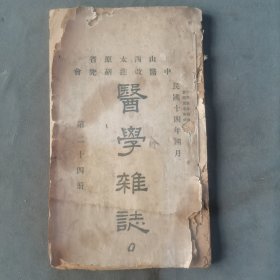 山西太原省
中醫改進研究會
民國十四年國月
醫學雜誌
第二十四期